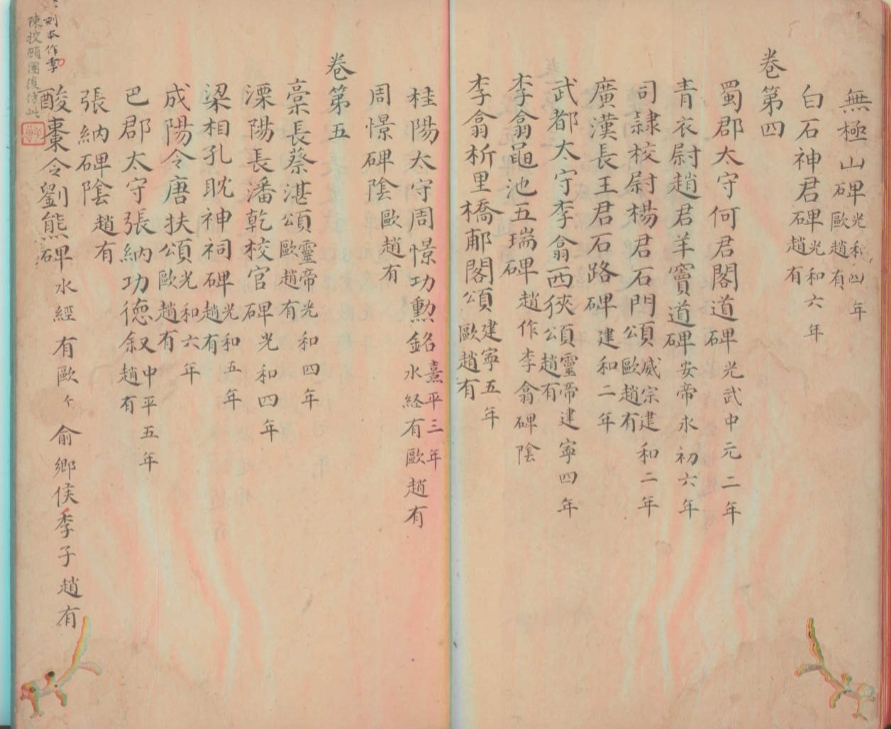 無極山碑光和四年歐趙有
白石神君碑光和六年趙有
卷第四
蜀郡太守何君閣道碑光武中元二年
青衣尉趙君羊竇道碑安帝永初六年
司隷校尉楊君石門頌威宗建和二年歐趙有
廣漢長王君石路碑建和二年
武都太守李翕西狹頌靈帝建寧四年公趙有
李翕黽池五瑞碑趙作李翕碑陰
李翕析里橋郙閣頌建寧五年歐趙有
桂陽太守周憬功勲銘熹平三年水經有歐趙有
周憬碑陰歐趙有
卷第五
稾長蔡湛頌靈帝光和四年歐趙有
溧陽長潘乾校官碑光和四年
梁相孔耽神祠碑光和五年趙有
成陽令唐扶頌光和六年歐趙有
巴郡太守張納功德叙中平五年又趙有
張納碑陰趙有
酸棗令劉熊碑水經有歐 俞鄉侯季子趙有